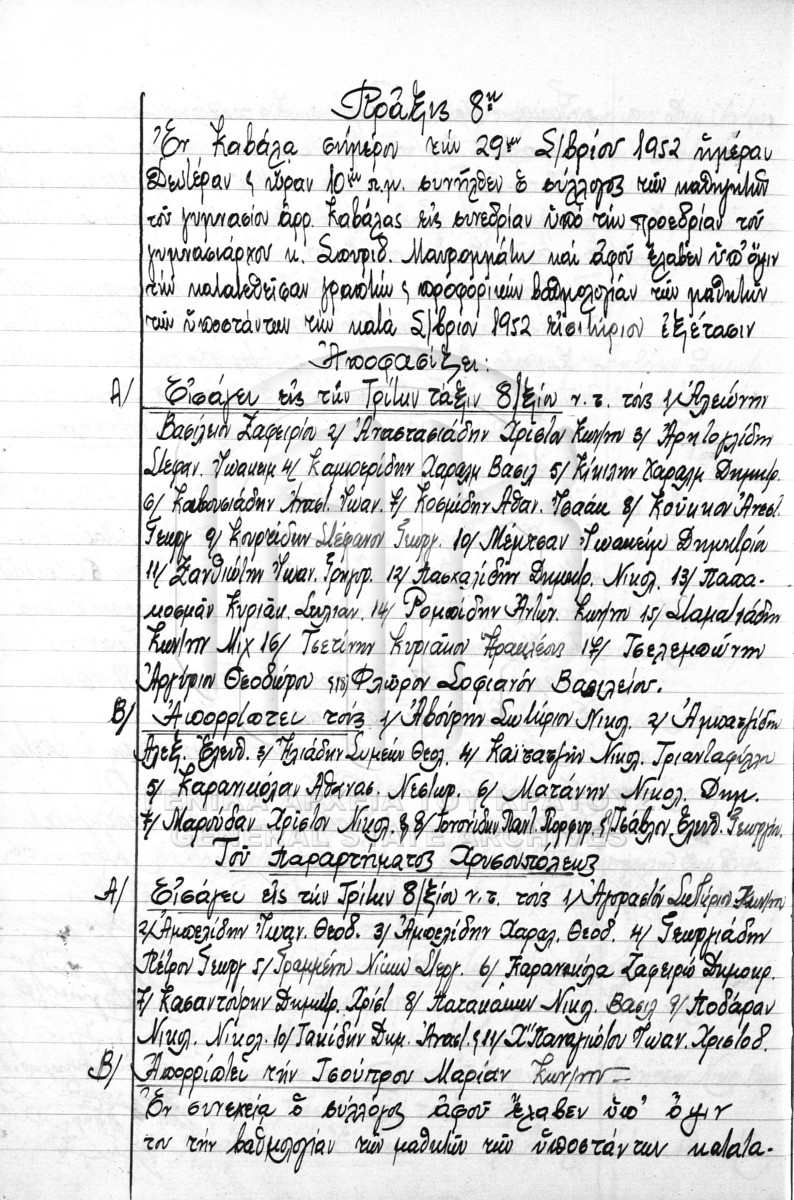 Πράξις 8η
Ἐν Καβάλᾳ σήμερον τὴν 29ην Σ/βρίου 1952 ἡμέραν
Δευτέραν ϛ ὥραν 10ην π.μ. συνῆλθεν ὁ σύλλογος τῶν καθηγητῶν
τοῦ γυμνασίου ἀρρ. Καβάλας εἰς συνεδρίαν ὑπὸ τὴν προεδρίαν τοῦ
γυμνασιάρχου κ. Σπυρίδ. Μαυρομμάτη καὶ ἀφοῦ ἔλαβεν ὑπ' ὄψιν
τὴν κατατεθεῖσαν γραπτὴν ϛ προφορικὴν βαθμολογίαν τῶν μαθητῶν
τῶν ὑποστάντων τὴν κατὰ Σ/βριον 1952 εἰσιτήριον ἐξέτασιν
Ἀποφασίζει:
Α/ Εἰσάγει εἰς τὴν Τρίτην τάξιν 8/ξίου ν.τ. τοὺς 1/ Ἀλεώνην
Βασίλειον Ζαφειρίου 2/ Ἀναστασιάδην Χρῖστον Κων/νου 3/ Ἀρητογλίδην
Στεφαν. Ἰωακειμ 4/ Καμπερίδην Χαραλμ Βασιλ 5/ Κίκιλην Χαραλμ Δημητρ.
6/ Καβουσιάδην Ἀναστ. Ἰωαν. 7/ Κοσμίδην Αθαν. Ἰσαάκ 8/ Κούκκον Ἀναστ.
Γεωργ 9/ Κουρτίδην Στέφανον Γεωργ. 10/ Μέμτσαν Ἰωακεὶμ Δημητρίου
11/ Ξανθιώτην Ἰωαν. Γρηγορ. 12/ Πασχαλίδην Δημητρ. Νικολ. 13/ Παπα-
μοσμᾶν Κυριάκ. Στυλιαν. 14/ Ρομπίδην Ἀντων. Κων/νου 15/ Σταματιάδην
Κων/νον Μιχ 16/ Τσετίνην Κυριάκον Ἡρακλέους 17/ Τσελεμπώνην
Ἀργύριον Θεοδώρου ϛ 18/ Φλῶρον Σοφιανὸν Βασιλείου.
Β/ Ἀπορρίπτει τοὺς 1/ Ἀβούρην Σωτήριον Νικολ. 2/ Ἀμπατζίδην
Ἀλεξ. Ἐλευθ. 3/ Ἠλιάδην Συμεὼν Θεολ. 4/ Καϊτατζῆν Νικολ. Τριανταφύλλου
5/ Καρανικόλαν Ἀθανασ. Νεστωρ. 6/ Ματάνην Νικολ. Δημ.
7/ Μαρούδαν Χρῖστον Νικολ. ϛ 8/ Παντ. Πορφυρ. ϛ Τσάβλον Ἐλευθ. Γεωργίου.
Τοῦ παραρτήματος Χρυσουπόλεως
Α/ Εἰσάγει εἰς τὴν Τρίτην 8/ξίου ν.τ. τοὺς 1/ Ἀγοραστὸν Σωτήριον Κων/νου
2/ Ἀμπελίδην Ἰωαν. Θεοδ. 3/ Ἀμπελίδην Χαραλ. Θεοδ. 4/ Γεωργιάδην
Πέτρον Γεωργ 5/ Γραμμένη Νίκην Στεργ. 6/ Καρανικόλα Ζαφειρὼ Δημοκρ.
7/ Κασαντούρην Δημητρ. Χρίστ 8/ Πατακάκην Νικολ. Βασιλ 9/ Ποδάραν
Νικολ. Νικολ. 10/ Τακίδην Δημ. Ἀναστ. ϛ 11/ Χ"Παναγιώτου Ἰωαν. Χριστοδ.
Β/ Ἀπορρίπτει τὴν Τσούπρου Μαρίαν Κων/νου
Ἐν συνεχείᾳ ὁ σύλλογος ἀφοῦ ἔλαβεν ὑπ' ὄψιν
του τὴν βαθμολογίαν τῶν μαθητῶν τῶν ὑποστάντων κατατα-
ΓΕΝΙΚΑ ΑΡΧΕΙΑ ΤΟΥ ΚΡΑΤΟΥΣ
GENERAL STATE ARCHIVES